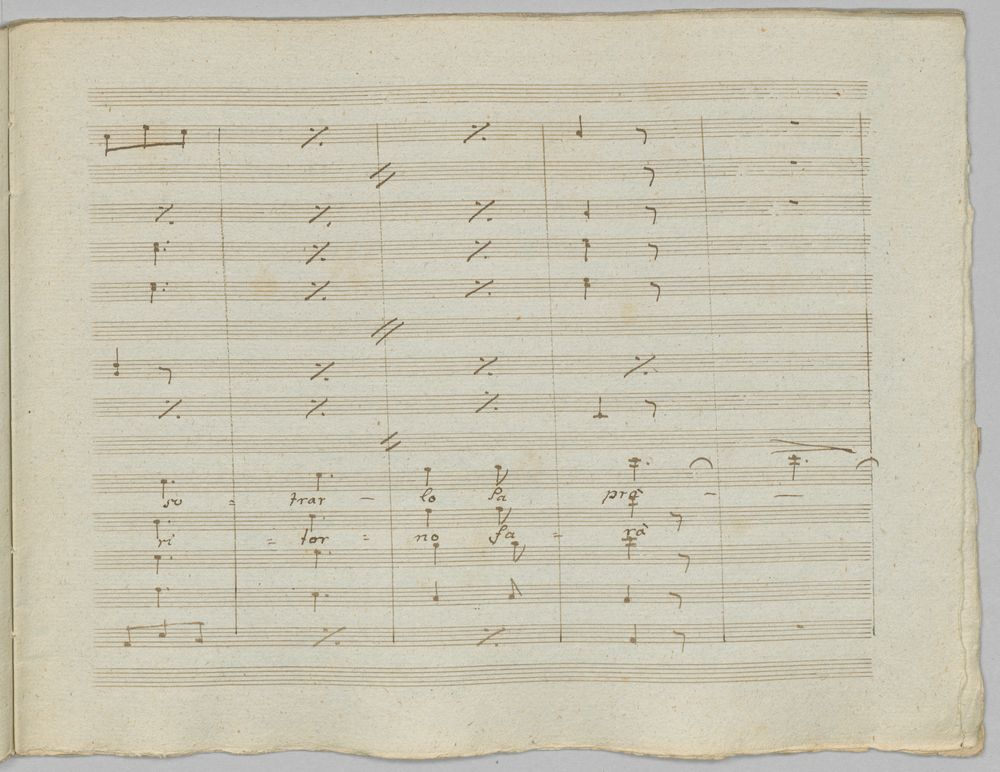 so = trar - lo sa prà - -
ri = tor = no fa = rà